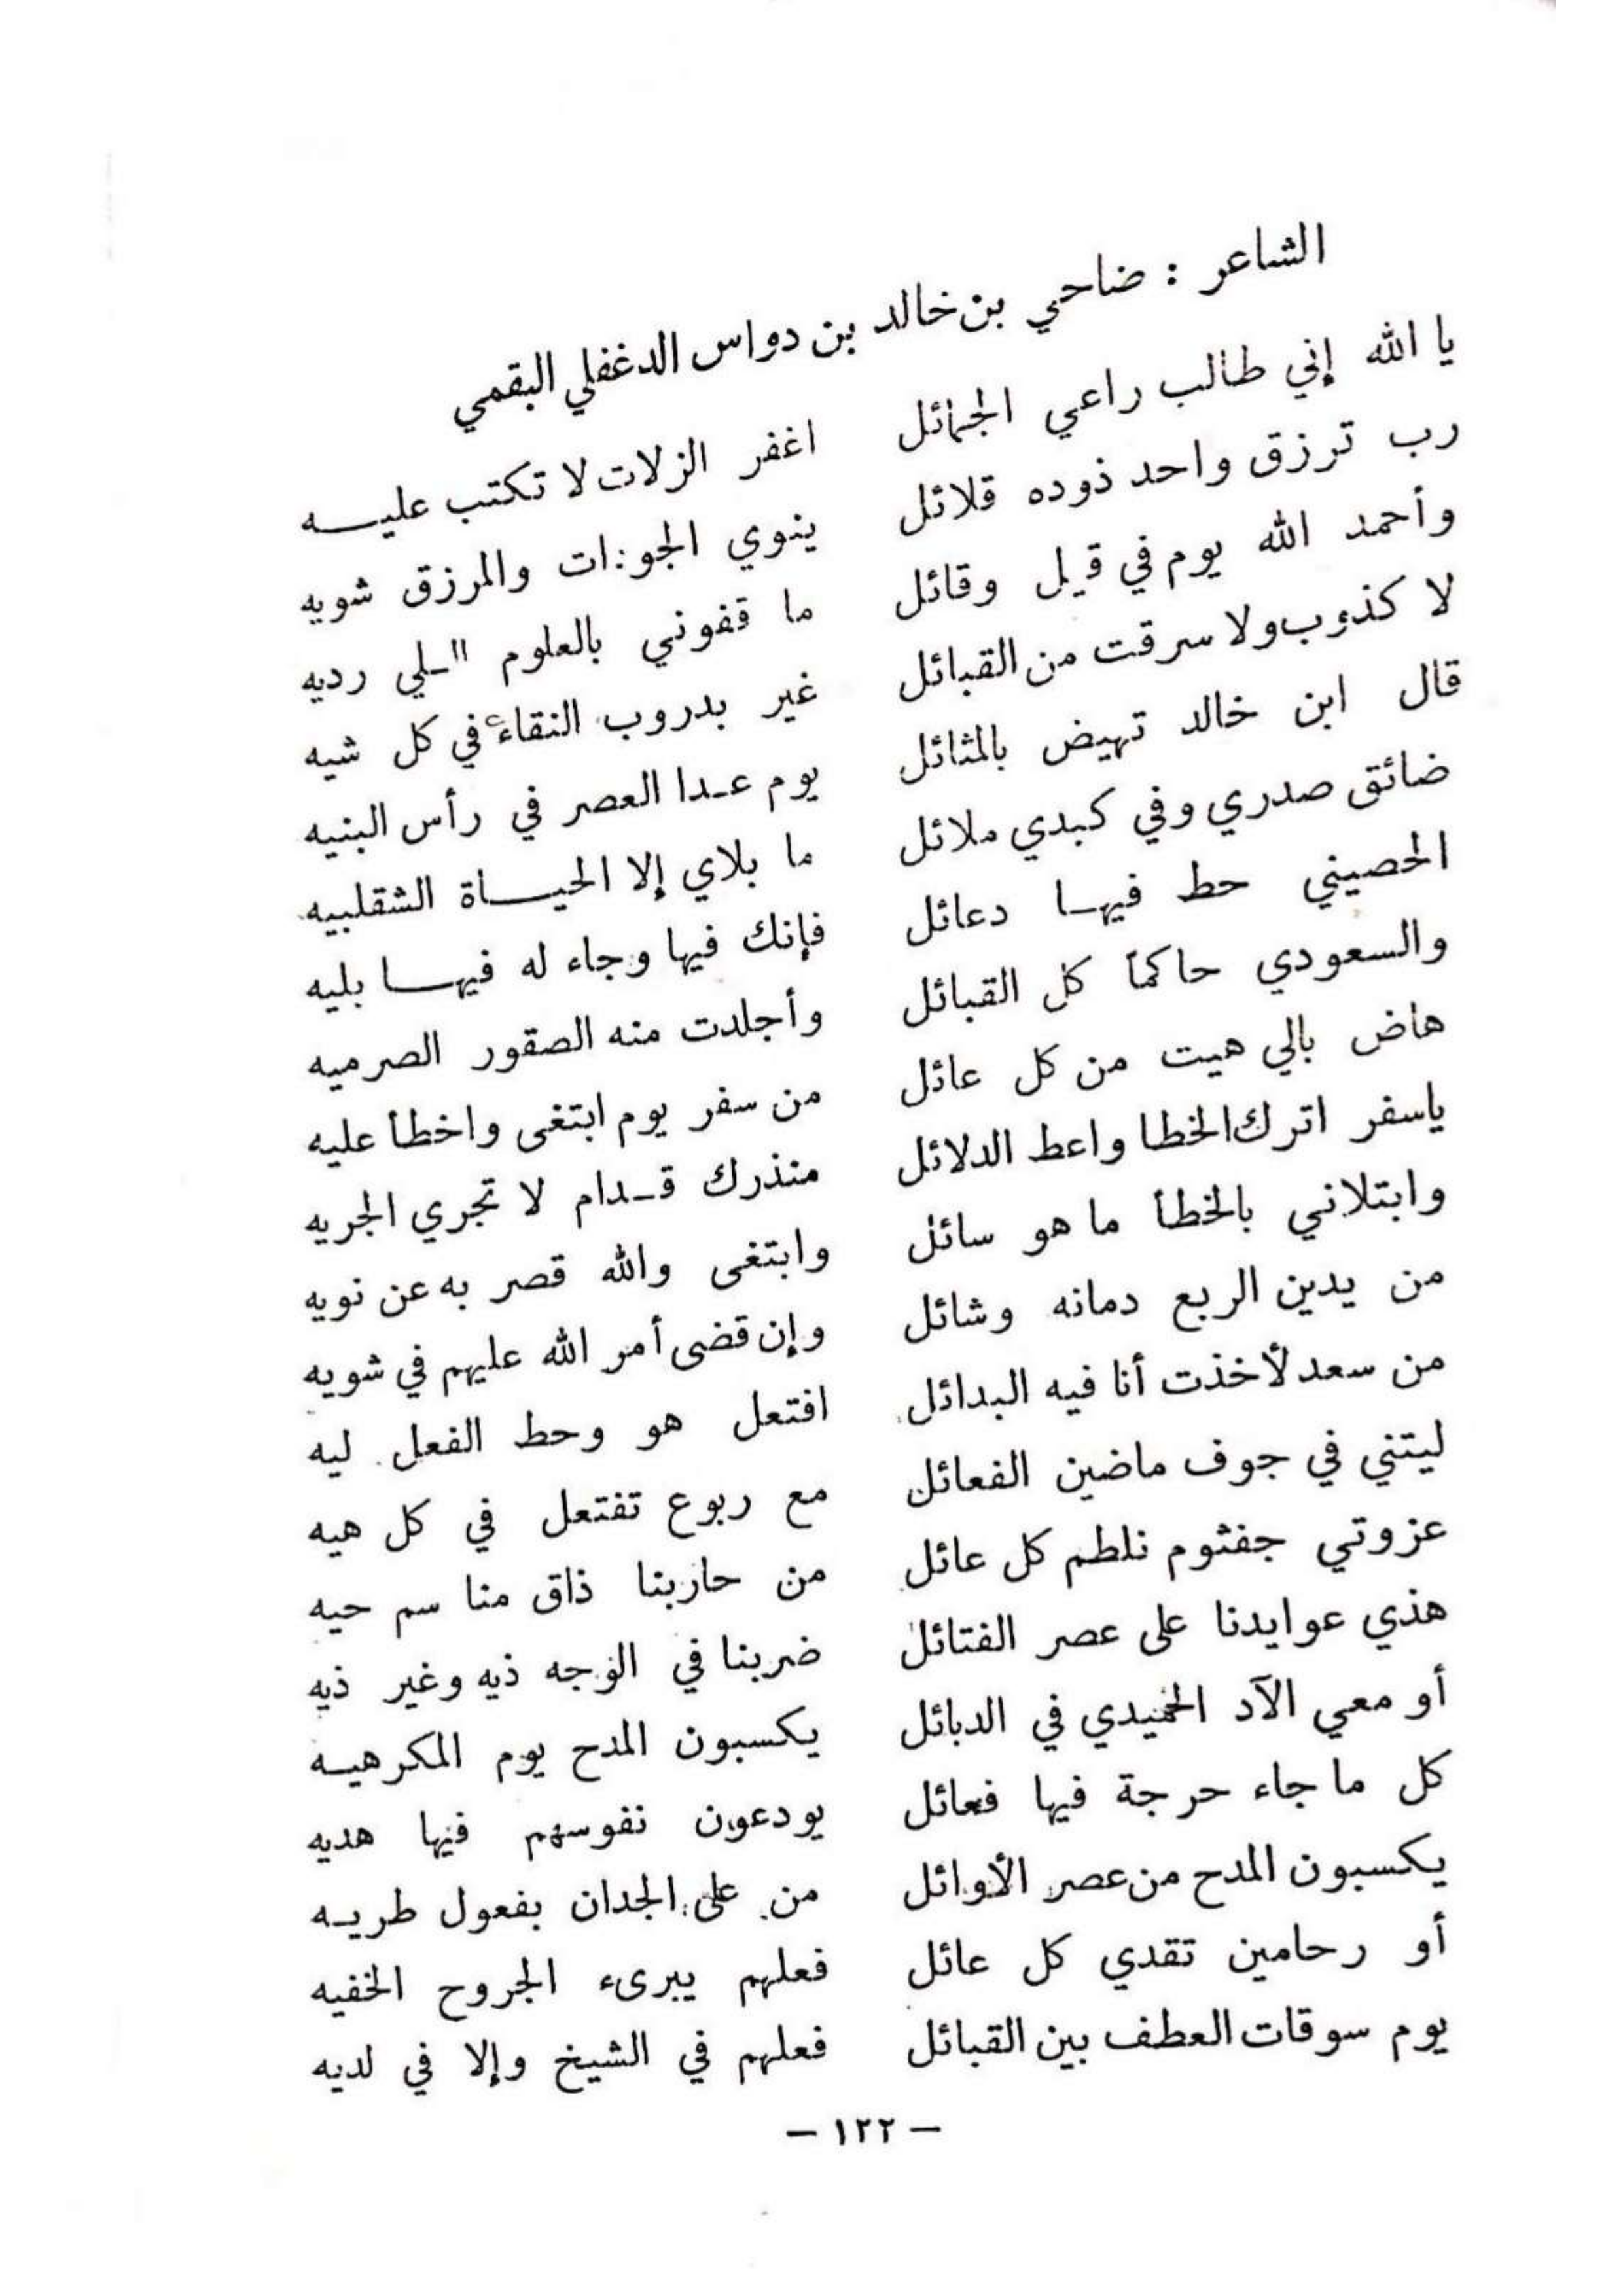 الشاعر : ضاحي بن خالد بن دواس الدغفلي البقمي
يا الله إني طالب راعي الجمائل اغفر الزلات لا تكتب عليه
رب ترزق واحد ذوده قلائل ينوي والمرزق شويه
وأحمد الله يوم في قيل وقائل ما قفوني بالعلوم اللي رديه
لا كذوب ولا سرقت من القبائل غير بدروب النقاء في كل شيه
قال ابن خالد تهيض بالمثائل يوم عدا العصر في رأس البنيه
ضائق صدري وفي كبدي ملائل ما بلاي إلا الحياة الشقلبيه
الحصيني حط فيها دعائل فإنك فيها وجاء له فيها بليه
والسعودي حاكماً كل القبائل وأجلدت منه الصقور الصرميه
هاض بالي هيت من كل عائل من سفر يوم ابتغى واخطأ عليه
ياسفر اترك الخطا واعط الدلائل منذرك قدام لا تجري الجريه
وابتلاني بالخطأ ما هو سائل وابتغى والله قصر به عن نويه
من يدين الربع دمانه وشائل وإن قضى أمر الله عليهم في شويه
من سعد لأخذت أنا فيه البدائل افتعل هو وحط الفعل ليه
ليتني في جوف ماضين الفعائل مع ربوع تفتعل في كل هيه
عزوتي جفثوم نلطم كل عائل من حاربنا ذاق منا سم حيه
هذي عوايدنا على عصر الفتائل ضربنا في الوجه ذيه وغير ذيه
أو معي الآد الحميدي في الدبائل يكسبون المدح يوم المكرهيه
كل ما جاء حرجة فيها فعائل يودعون نفوسهم فيها هديه
يكسبون المدح من عصر الأوائل من على الجدان بفعول طريه
أو رحامين تقدي كل عائل فعلهم يبرىء الجروح الخفيه
يوم سوقات العطف بين القبائل فعلهم في الشيخ وإلا في لديه
— ١٢٢ —